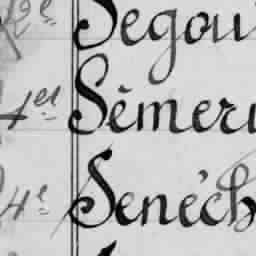 2e Segou
1er Sèmeru
4e Senéch